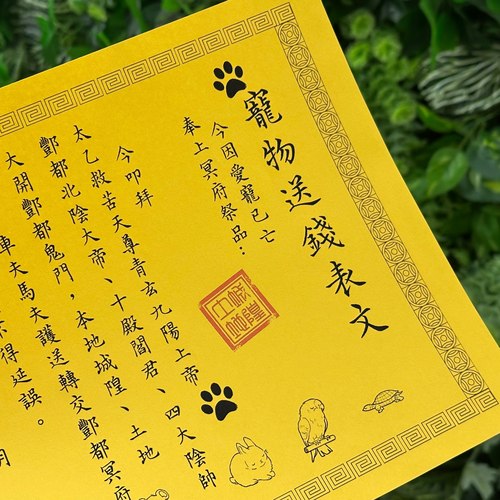 寵物送錢表文
今因愛寵已亡
奉上冥府祭品：
今叩拜
太乙救苦天尊青玄九陽上帝、四大陰帥
酆都北陰大帝、十殿閻君、土地
大開酆都鬼門，本地城隍、
車夫馬夫護送轉交酆都冥府
得延誤。
月